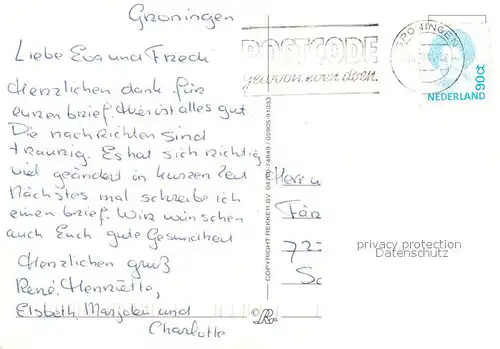 Groningen
Liebe Eva und Fredi
Herzlichen dank für
euren brief. Hier ist alles gut
Die nachrichten sind
traurig. Es hat sich richtig
viel geändert in kurzen Zeit
Nächstes mal schreibe ich
einen brief. Wir wünschen
auch Euch gute Gesundheit
Herzlichen gruß
René, Henriëtte,
Elsbeth, Marjolein und
Charlotte
POSTCODE
gewoon even doen.
GRONINGEN
90ct
NEDERLAND
COPYRIGHT REKKER BV
Herr u
72
privacy protection
Datenschutz
©R